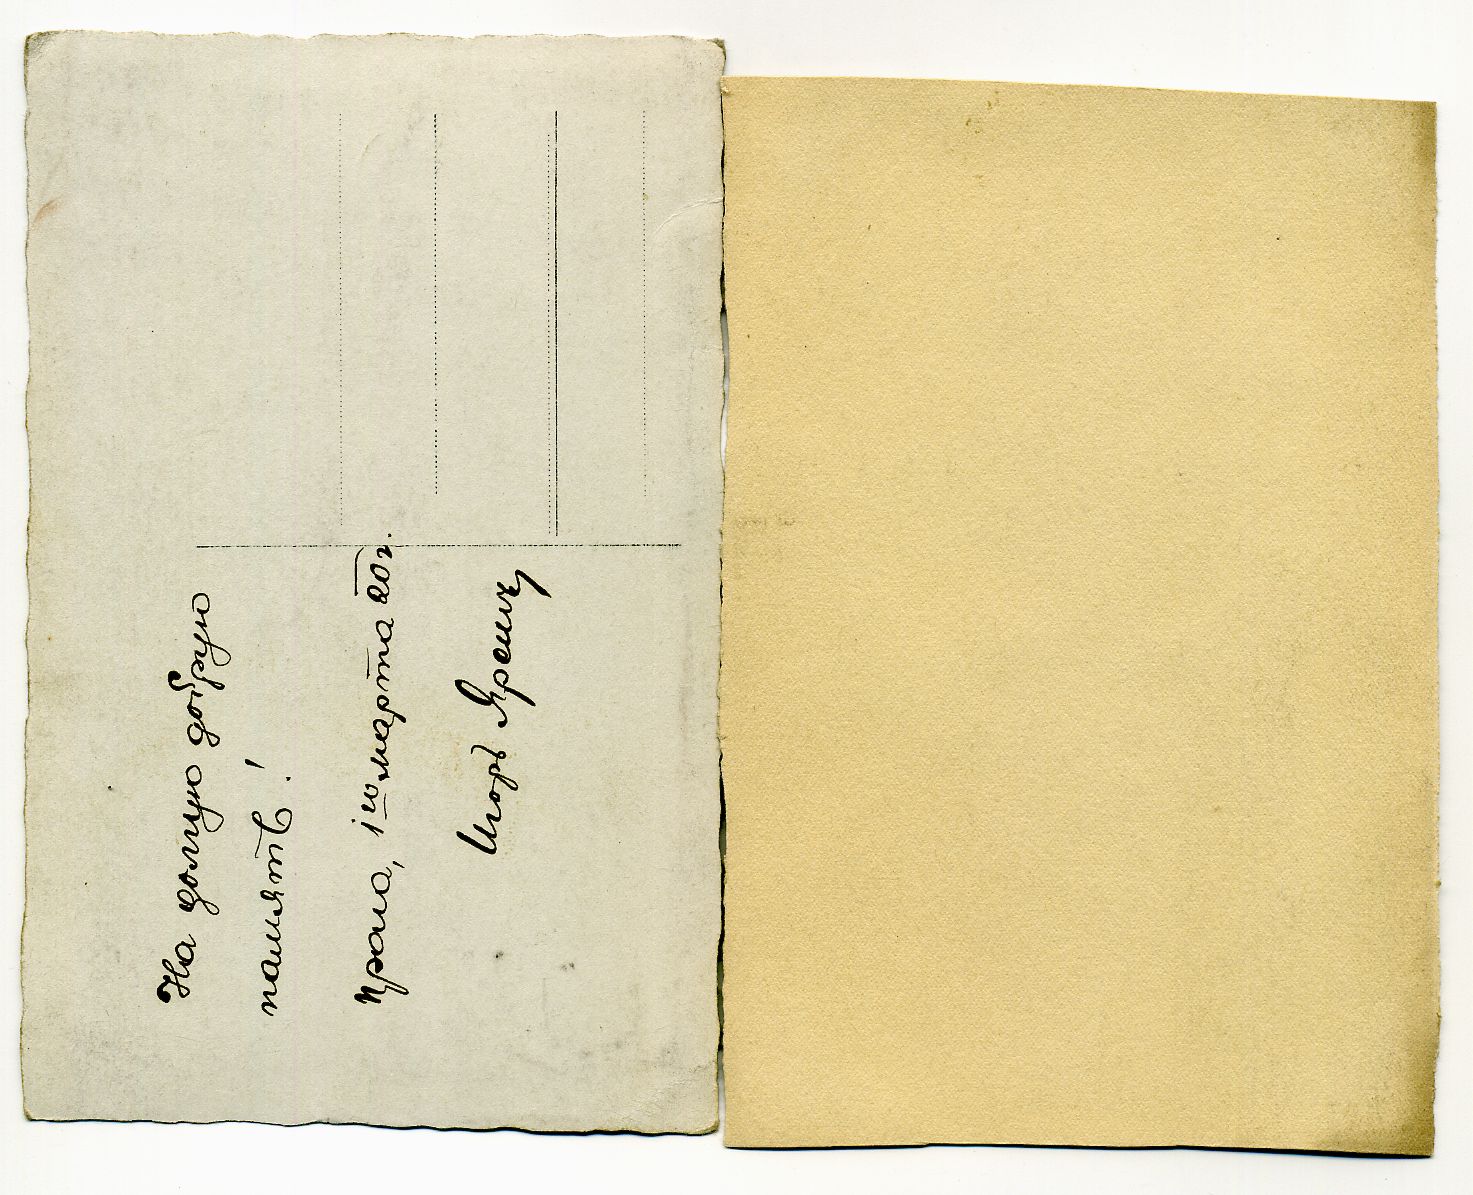 На долгую добрую
память!
1го марта 20г.
Игорь